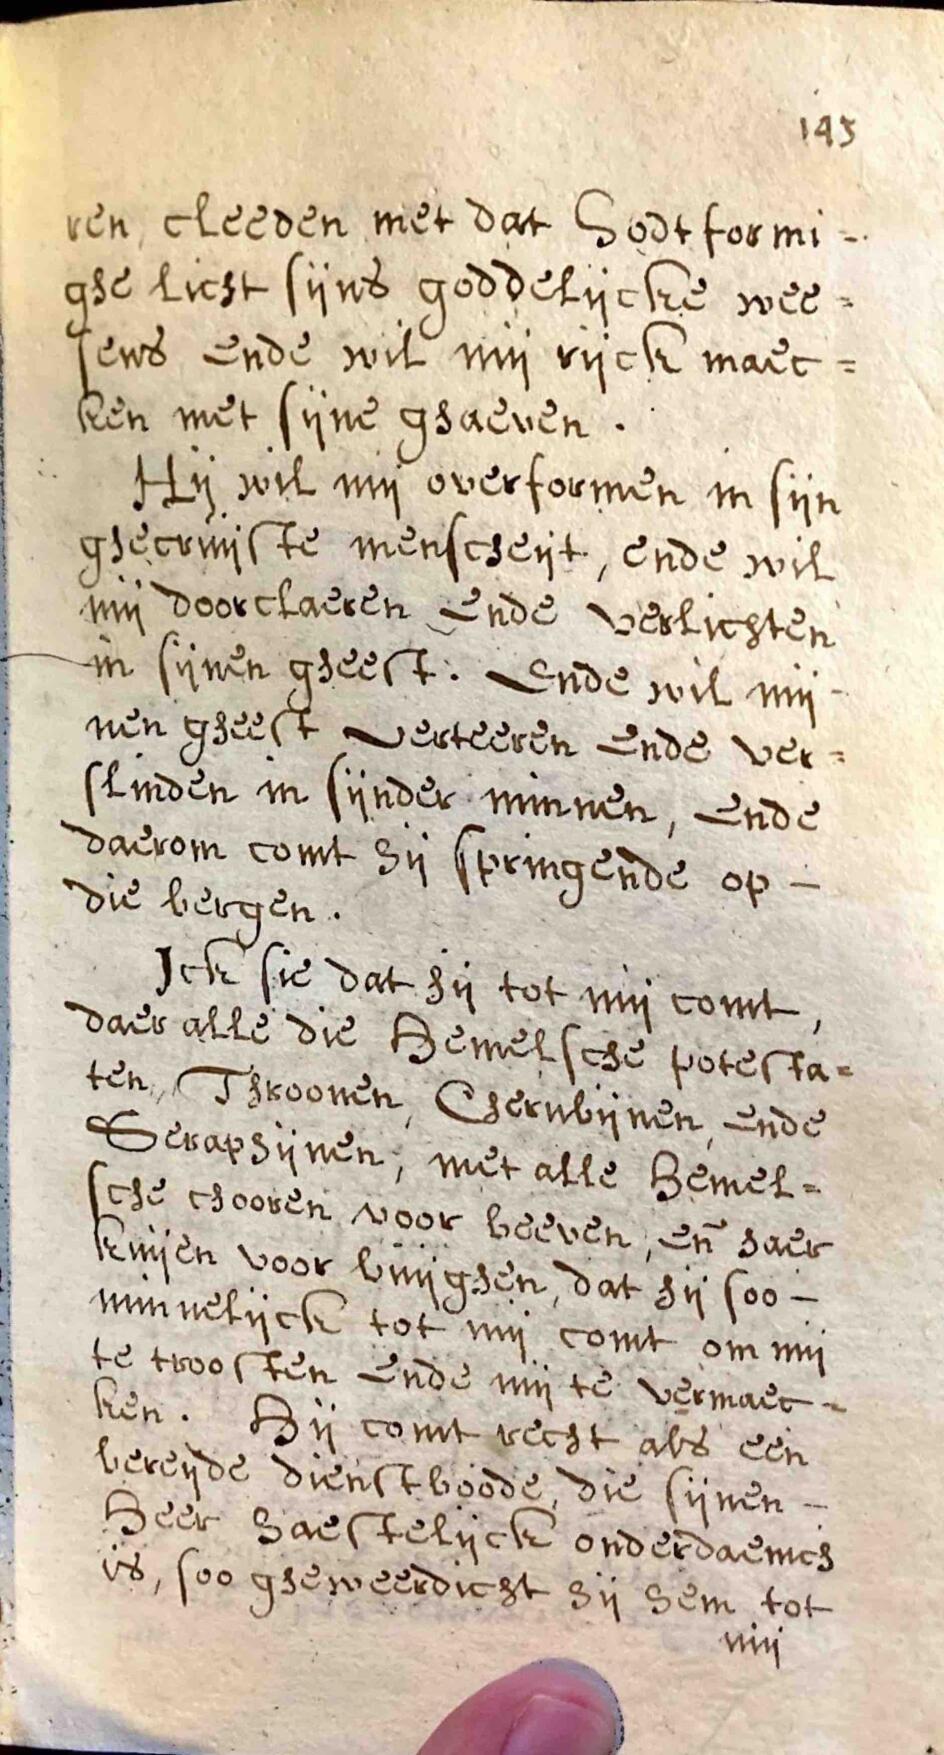 145
ren cleeden met dat Godtformi-
ghe licht sijns goddelijcke wee=
sens ende wil mij rijck maec=
ken met sijne ghaeven.
Hij wil mij overformen in sijn
ghecruijste menscheijt, ende wil
mij doorclaeren ende verlichten
in sijnen gheest. Ende wil mij-
nen gheest verteeren ende ver=
slinden in sijnder minnen, ende
daerom comt hij springende op-
die bergen.
Ick sie dat hij tot mij comt,
daer alle die Hemelsche potesta=
ten, Throonen, Cherubijnen, ende
Seraphijnen, met alle Hemel=
sche chooren voor beeven, en̄ haer
knijen voor buijghen, dat hij soo-
minnelijck tot mij comt om mij
te troosten ende mij te vermaec=
ken. Hij comt recht als een
bereijde dienstboode, die sijnen-
Heer haestelijck onderdaenich
is, soo gheweerdicht hij hem tot
mij